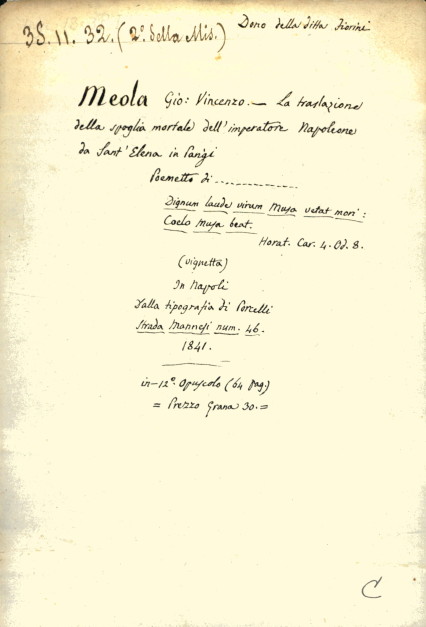 35.11.32.(2º della Mis.)
Dono della ditta Fiorini
Meola Gio: Vincenzo. — La traslazione
della spoglia mortale dell'imperatore Napoleone
da Sant'Elena in Parigi
Poemetto di ---------------
Dignum laude virum Musa vetat mori:
Caelo Musa beat.
Horat. Car. 4. Od. 8.
(vignetta)
In Napoli
Dalla tipografia di Porcelli
Strada Mannesi num: 46.
1841.
in-12º. Opuscolo (64 pag.)
= Prezzo Grana 30. =
C